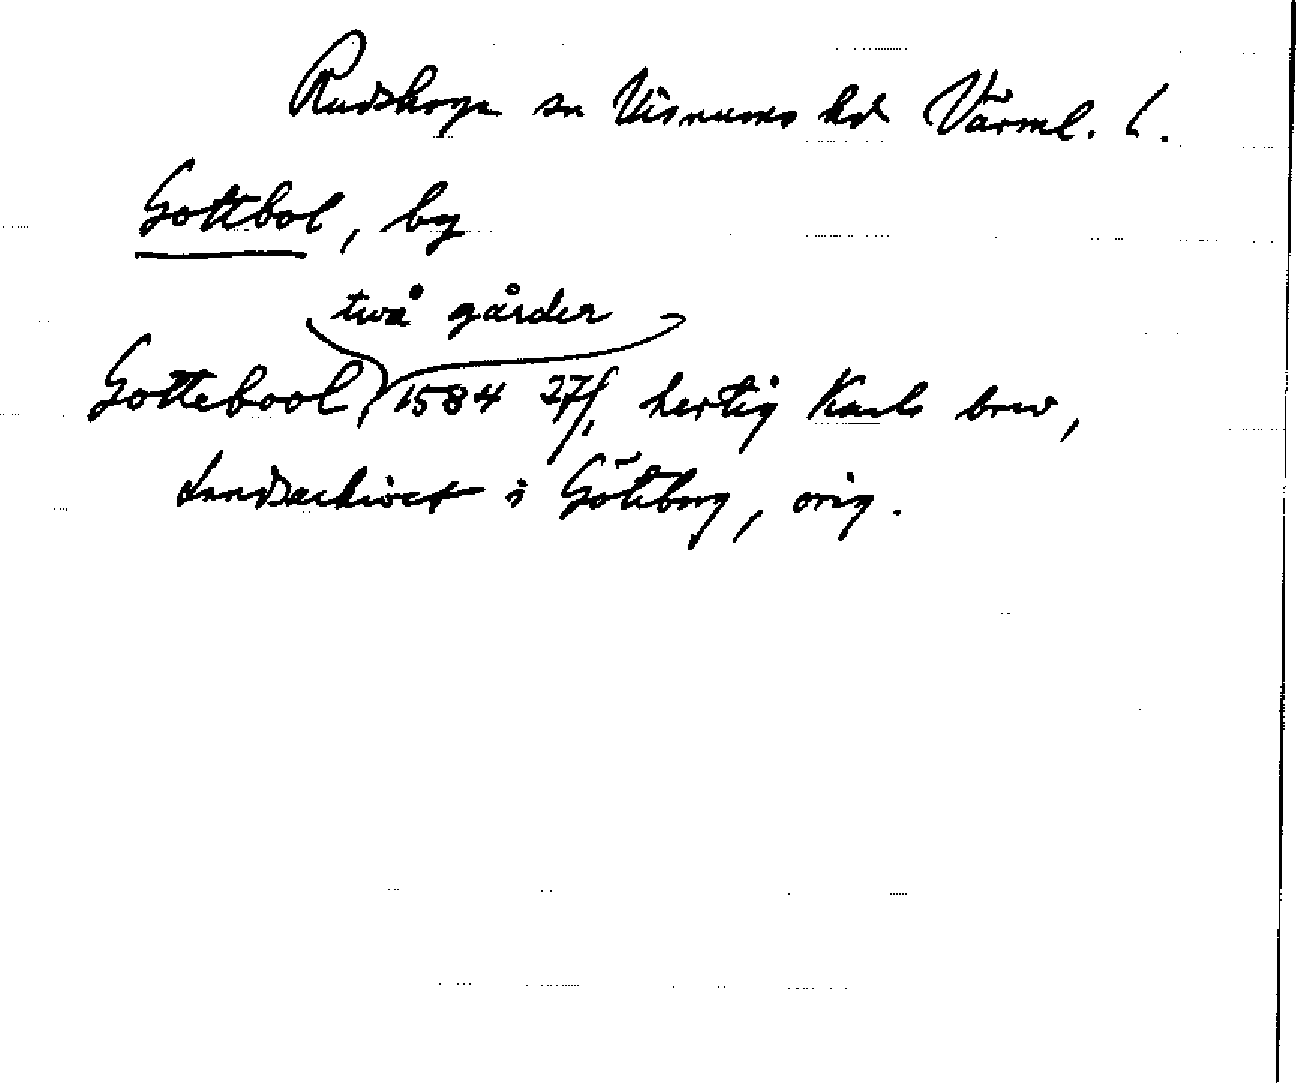 Rudskoga sn Visnums hd Värml. l.
Gottbol, by
två gårder
Gottebool, 1584 27/1, hertig Karls brev,
Landsarkivet i Göteborg, orig.